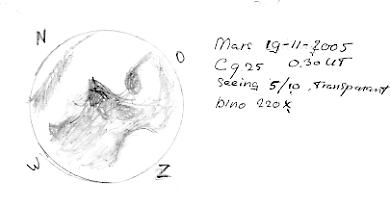 N
O
W
Z
Mars 19-11-2005
C9.25 0.30 UT
Seeing 5/10, Transparant
bino 220x